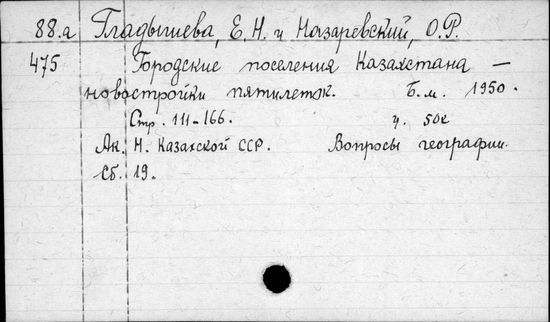 88.а Гладышева, Е.Н. и Назаревский, О.Р.
475 Городские поселения Казахстана –
новостройки пятилеток. Б.м. 1950.
Стр. 111-166. ч. 50к
Ак. Н. Казахской ССР. Вопросы географии.
Сб. 19.